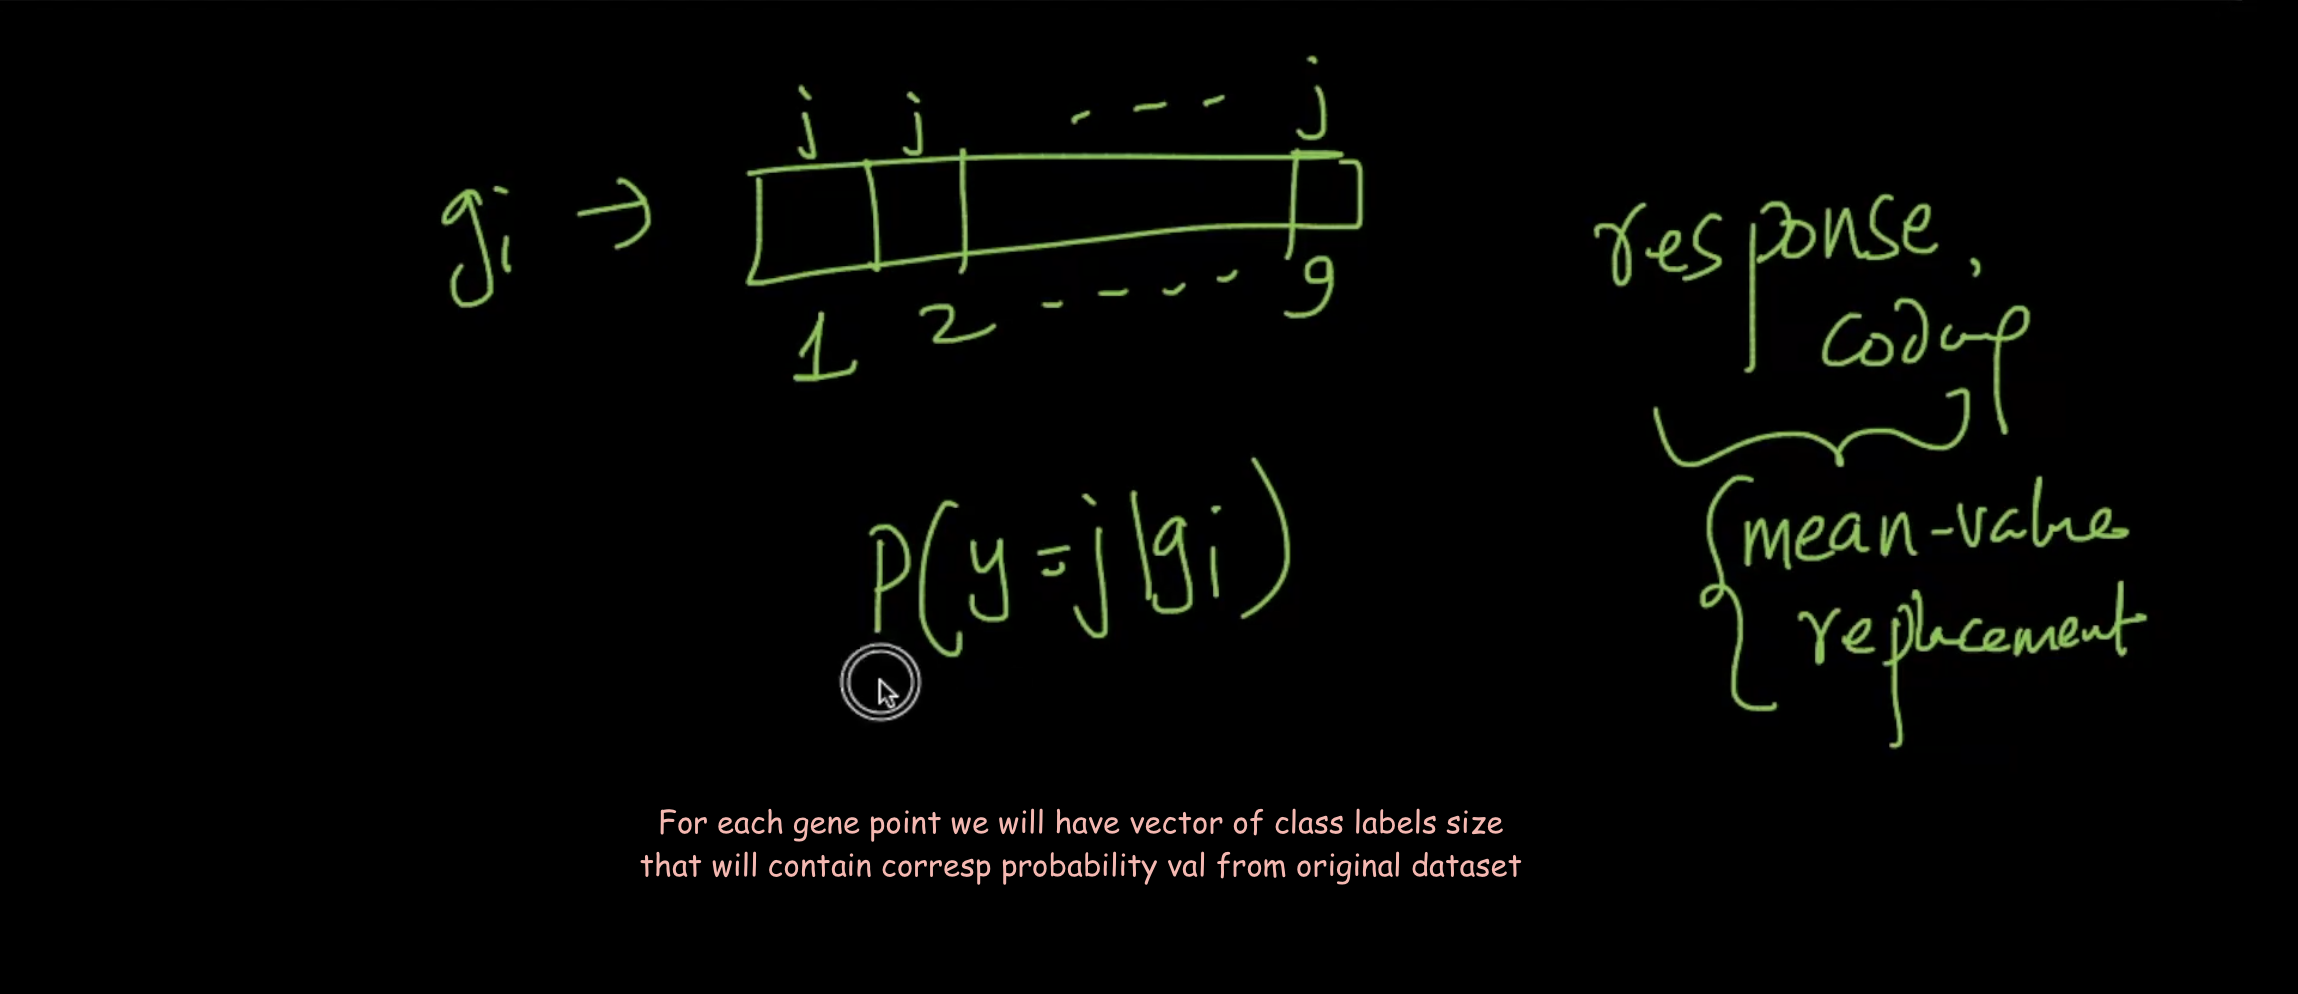 j j - - - j
gi →
1 2 - - - - 9
response
coding
{mean-value
replacement
P(y=j|gi)
For each gene point we will have vector of class labels size
that will contain corresp probability val from original dataset